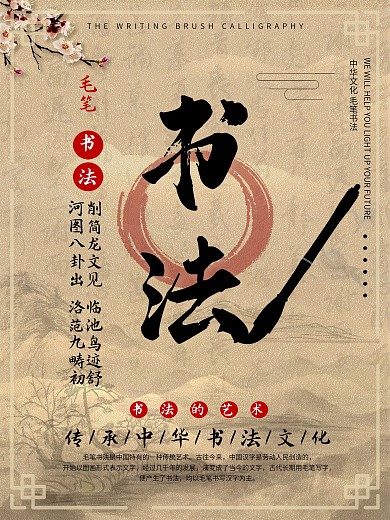 THE WRITING BRUSH CALLIGRAPHY
毛笔
书法
削简龙文见
河图八卦出
临池鸟迹舒
洛范九畴初
书法
中华文化 毛笔书法
WE WILL HELP YOU LIGHT UP YOUR FUTURE
书法的艺术
传/承/中/华/书/法/文/化
毛笔书法是中国特有的一种传统艺术。古往今来，中国汉字是劳动人民创造的，
开始以图画形式表示文字，经过几千年的发展，演变成了当今的文字，古代长期用毛笔写字，
便产生了书法，均以毛笔书写汉字为主。